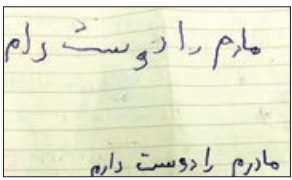 مارم را دوست دام
مادرم را دوست دارم